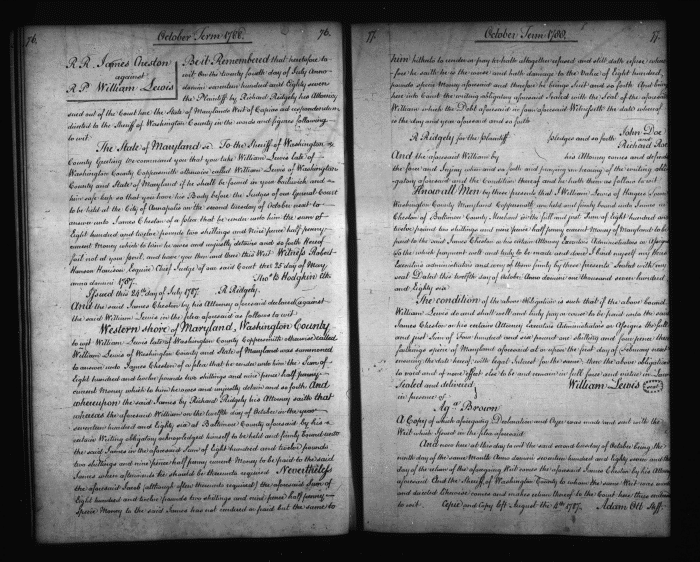 76. October Term 1788. 76.
R.R. James Cheston
against
R.P. William Lewis
Be it Remembered that heretofore to
wit On the twenty fourth day of July Anno
domini seventeen hundred and Eighty seven
the Plaintiff by Richard Ridgely his Attorney
sued out of the Court here the State of Maryland's Writ of Capias ad respondendum
directed to the Sheriff of Washington County in the words and figures following
to wit
The State of Maryland ss. To the Sheriff of Washington
County Greeting We command you that you take William Lewis late of
Washington County Coppersmith otherwise called William Lewis of Washington
County and State of Maryland if he shall be found in your bailiwick and
him safe keep so that you have his Body before the Judges of our General Court
to be held at the City of Annapolis on the second tuesday of October next to
answer unto James Cheston of a plea that he render unto him the sum of
Eight hundred and twelve pounds two shillings and nine pence half penny
current Money which to him he owes and unjustly detains and so forth Hereof
fail not at your peril, and have you then and there this Writ Witness Robert
Hanson Harrison Esquire Chief Judge of our said Court this 25 day of May
anno domini 1787. Thos. B Hodgkin Clk
Issued this 24th day of July 1787. R. Ridgely.
And the said James Cheston by his Attorney aforesaid declared against
the said William Lewis in the plea aforesaid as follows to wit
Western shore of Maryland, Washington County
to wit William Lewis late of Washington County Coppersmith otherwise called
William Lewis of Washington County and State of Maryland was summoned
to answer unto James Cheston of a plea that he render unto him the Sum of
Eight hundred and twelve pounds two shillings and nine pence half penny
current Money which to him he owes and unjustly detains and so forth And
whereupon the said James by Richard Ridgely his Attorney saith that
whereas the aforesaid William on the twelfth day of October in the year
seventeen hundred and Eighty six at Baltimore County aforesaid by his
certain Writing obligatory acknowledged himself to be held and firmly bound unto
the said James in the aforesaid Sum of Eight hundred and twelve pounds
two shillings and nine pence half penny current Money to be paid to the said
James when afterwards he should be thereunto required Nevertheless
the aforesaid (although often thereunto required) the aforesaid Sum of
Eight hundred and twelve pounds two shillings and nine pence half penny
Specie Money to the said James has not rendered or paid but the same to
77. October Term 1788. 77.
him hitherto to render or pay hath altogether refused and still doth refuse
fore he saith he is the worse and hath damage to the Value of Eight hundred
pounds specie Money aforesaid and therefore he brings suit and so forth And brings
here into Court the writing obligatory aforesaid Sealed with the Seal of the aforesaid
William which the Debt aforesaid in form aforesaid Witnesseth the date whereof
is the day and year aforesaid and so forth
R Ridgely for the plaintiff pledges and so forth John Doe
and
Richard Roe
And the aforesaid William by his Attorney comes and defends
the force and Injury when and so forth and praying an hearing of the writing obli-
gatory aforesaid and the Condition thereof and he hath them as follows to wit
Know all Men by these presents that I William Lewis of Hagers Town
Washington County Maryland Coppersmith am held and firmly bound unto James
Cheston of Baltimore County Merchant in the full and just Sum of Eight hundred and
twelve pounds two shillings and nine pence half penny current Money of Maryland to be
paid to the said James Cheston or his certain Attorney Executors Administrators or Assigns
To the which payment well and truly to be made and done I bind myself my Heirs
Executors administrators and every of them firmly by these presents Sealed with my
seal Dated this twelfth day of October Anno domini one thousand seven hundred
and Eighty six
The condition of the above Obligation is such that if the above bound
William Lewis do and shall well and truly pay or cause to be paid unto the said
James Cheston or his certain Attorney Executors Administrators or Assigns the full
and just Sum of Four hundred and six pounds one shilling and four pence three
farthings specie of Maryland aforesaid at or upon the first day of February next
ensuing the date hereof with legal Interest for the same, then the above obligation
to be void and of none effect else to be and remain in full force and virtue in Law
Sealed and delivered William Lewis (seal)
in presence of
Aq. Brown
A Copy of which aforegoing Declaration and Oyer was made and sent with the
Writ which issued in the plea aforesaid
And now here at this day to wit the second tuesday of October being the
ninth day of the same Month Anno domini seventeen hundred and Eighty seven and the
day of the return of the aforegoing Writ comes the aforesaid James Cheston by his Attorney
aforesaid And the Sheriff of Washington County to whom the same Writ was
and directed likewise comes and makes return thereof to the Court here thus endorsed
to wit Cepi and Copy left August the 4th 1787. Adam Ott Shff.